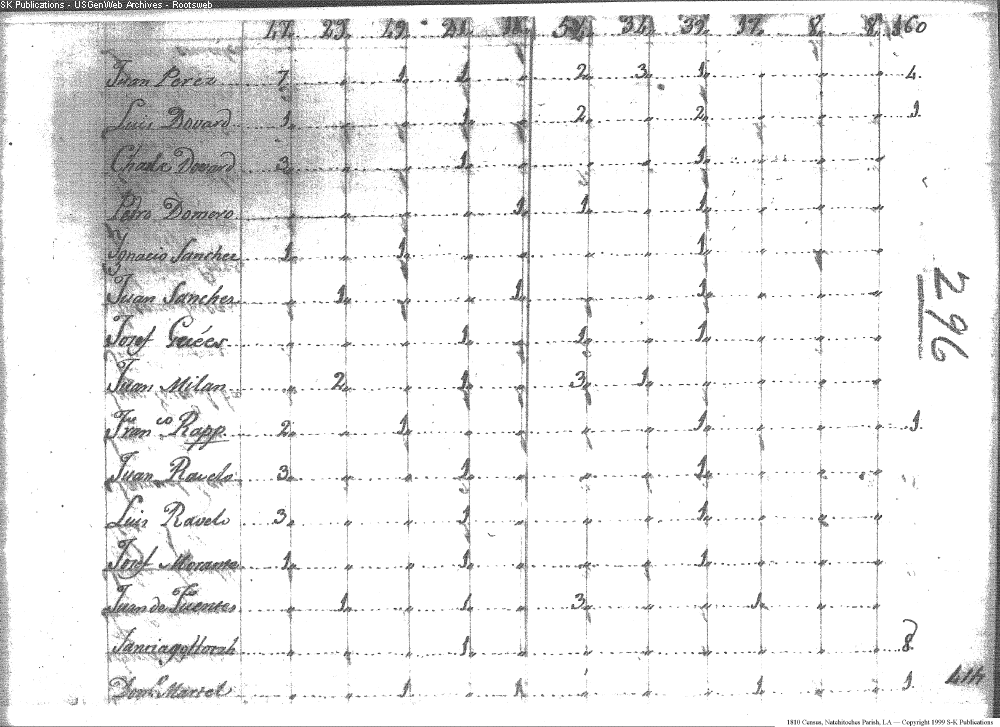 SK Publications - USGenWeb Archives - Rootsweb
17 23 19 21 18 54 34 39 17 8 8 160
Juan Perez 7 " 1 1 " 2 3 1 " " " 4
Luis Dovard 1 " " 1 " 2 " 2 " " " 1
Charle Dovard 3 " " 1 " " " 1 " " "
Pedro Domero " " " " 1 1 " 1 " " "
Ignacio Sanchez 1 " 1 " " " " 1 " " "
Juan Sanches " 1 " " 1 " " 1 " " "
Josef " " " 1 " 1 " 1 " " "
Juan Milan " 2 " 1 " 3 1 " " " "
Franco Rapp 2 " 1 " " " " 1 " " " 1
Juan Ravelo 3 " " 1 " " " 1 " " "
Luis Ravelo 3 " " 1 " " " 1 " " "
Josef Morame 1 " " 1 " " " 1 " " "
Juan de Fuentes " 1 " 1 " 3 " " 1 " "
" " " 1 " " " " " " " 8
Martel " " 1 " 1 " " " 1 " " 1
296
414
1810 Census, Natchitoches Parish, LA — Copyright 1999 S-K Publications